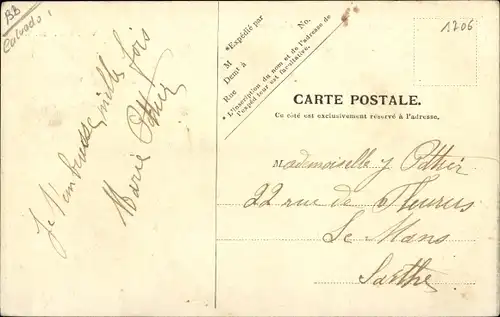 BB
Calvados
1206
*Expédié par
No.
M
Demt à
Rue
*L'inscription du nom et de l'adresse de
l'expéditeur est facultative.
CARTE POSTALE.
Ce côté est exclusivement réservé à l'adresse.
Je t'embrasse mille fois
Marie Pottier
Mademoiselle J Pottier
22 rue de Fleurus
Le Mans
Sarthe